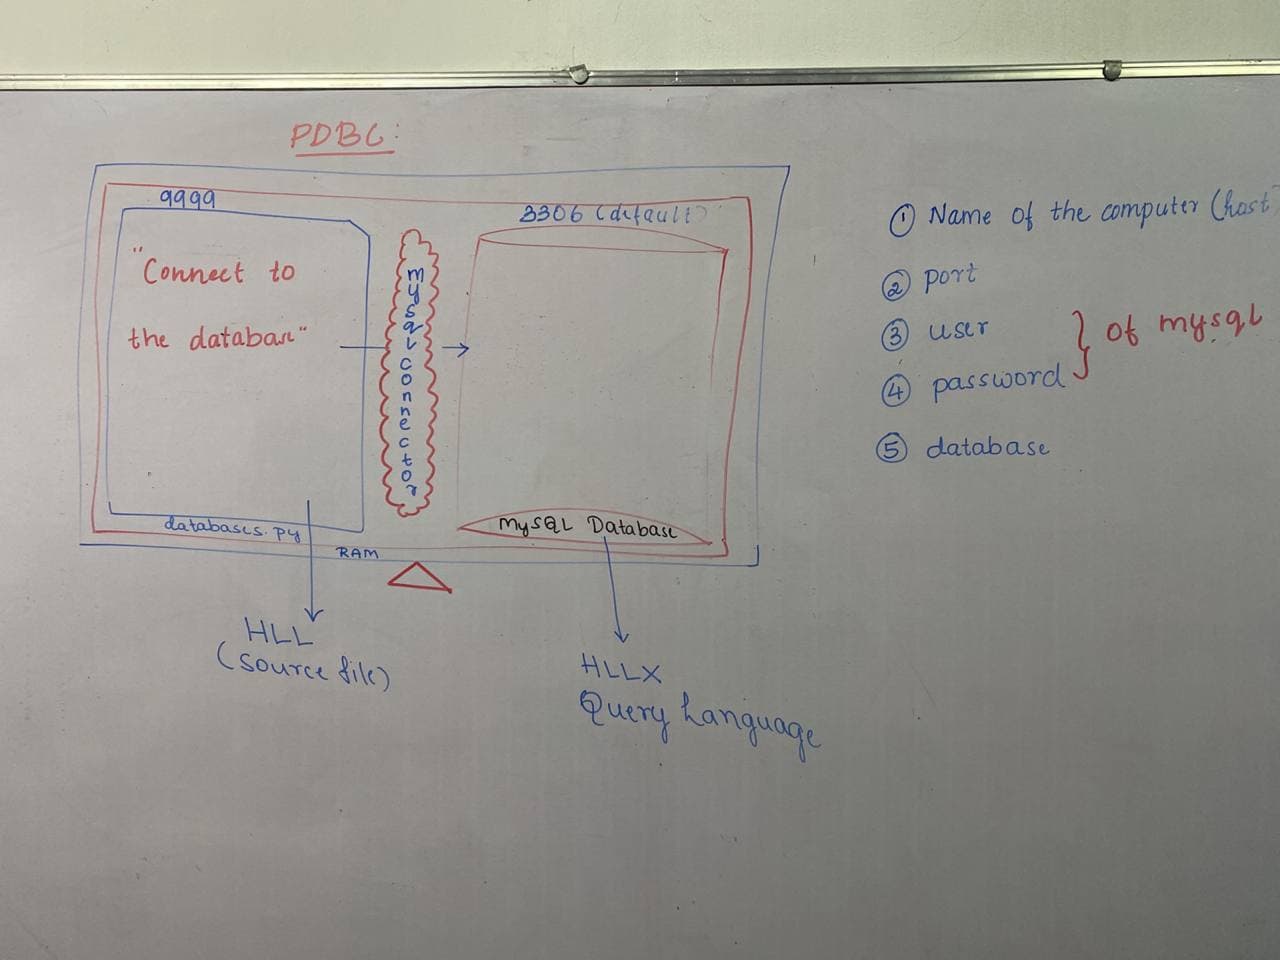 PDBC:
9999
"Connect to
the database"
mysql connector
3306 (default)
databases.py
MySQL Database
RAM
HLL
(source file)
HLLX
Query Language
① Name of the computer (host
② port
③ user
④ password
} of mysql
⑤ database